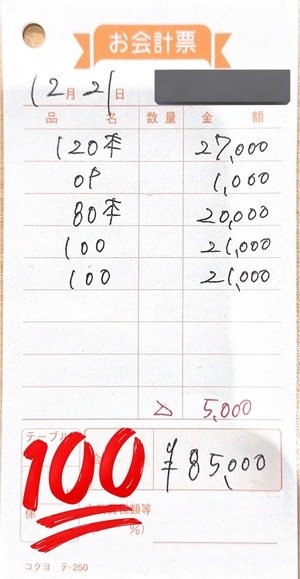 お会計票
12月21日
品名 数量 金額
120本 27,000
OP 1,000
80本 20,000
100 21,000
100 21,000
△ 5,000
テーブル
¥85,000
100
係
額等
%)
コクヨ テ-250